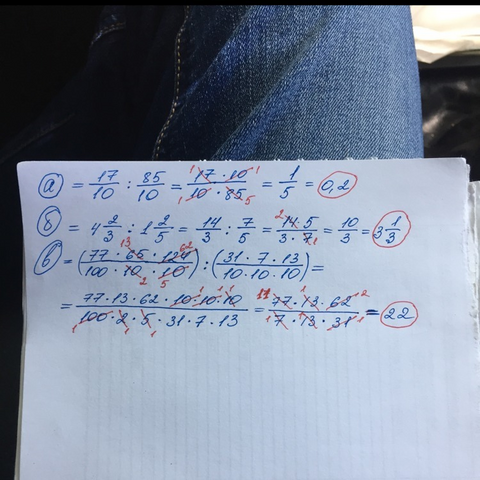 а) = 17/10 : 85/10 = 17 · 10/10 · 85 = 1/5 = 0,2
б) = 4 2/3 : 1 2/5 = 14/3 : 7/5 = 14 · 5/3 · 7 = 10/3 = 3 1/3
в) = (77 · 65 · 124/100 · 10 · 10) : (31 · 7 · 13/10 · 10 · 10) =
= 77 · 13 · 62 · 10 · 10 · 10/100 · 2 · 5 · 31 · 7 · 13 = 77 · 13 · 62/7 · 13 · 31 = 22